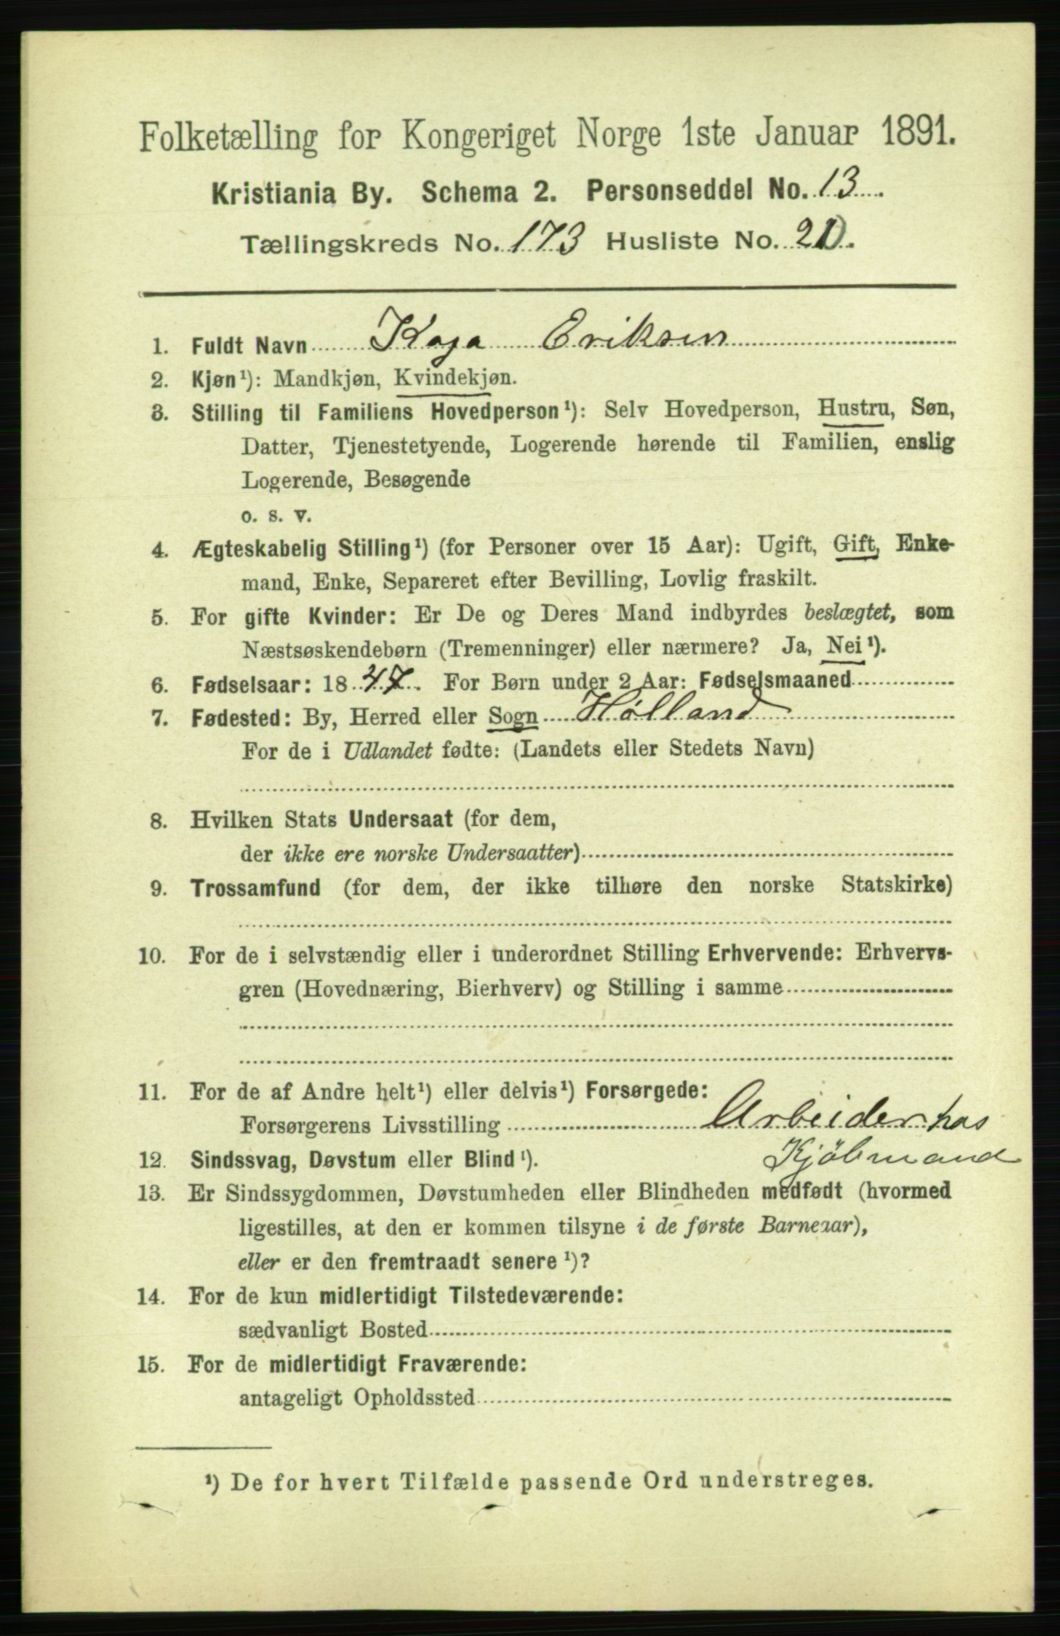 Folketælling for Kongeriget Norge 1ste Januar 1891.
Kristiania By. Schema 2. Personseddel No. 13.
Tællingskreds No. 173 Husliste No. 20.
1. Fuldt Navn Kaja Eriksen
2. Kjøn¹): Mandkjøn, Kvindekjøn.
3. Stilling til Familiens Hovedperson¹): Selv Hovedperson, Hustru, Søn,
Datter, Tjenestetyende, Logerende hørende til Familien, enslig
Logerende, Besøgende
o. s. v.
4. Ægteskabelig Stilling¹) (for Personer over 15 Aar): Ugift, Gift, Enke-
mand, Enke, Separeret efter Bevilling, Lovlig fraskilt.
5. For gifte Kvinder: Er De og Deres Mand indbyrdes beslægtet, som
Næstsøskendebørn (Tremenninger) eller nærmere? Ja, Nei¹).
6. Fødselsaar: 1847. For Børn under 2 Aar: Fødselsmaaned
7. Fødested: By, Herred eller Sogn Hølland
For de i Udlandet fødte: (Landets eller Stedets Navn)
8. Hvilken Stats Undersaat (for dem,
der ikke ere norske Undersaatter)
9. Trossamfund (for dem, der ikke tilhøre den norske Statskirke)
10. For de i selvstændig eller i underordnet Stilling Erhvervende: Erhvervs-
gren (Hovednæring, Bierhverv) og Stilling i samme
11. For de af Andre helt¹) eller delvis¹) Forsørgede:
Forsørgerens Livsstilling Arbeider hos
Kjøbmand
12. Sindssvag, Døvstum eller Blind¹).
13. Er Sindssygdommen, Døvstumheden eller Blindheden medfødt (hvormed
ligestilles, at den er kommen tilsyne i de første Barneaar),
eller er den fremtraadt senere¹)?
14. For de kun midlertidigt Tilstedeværende:
sædvanligt Bosted
15. For de midlertidigt Fraværende:
antageligt Opholdssted
¹) De for hvert Tilfælde passende Ord understreges.